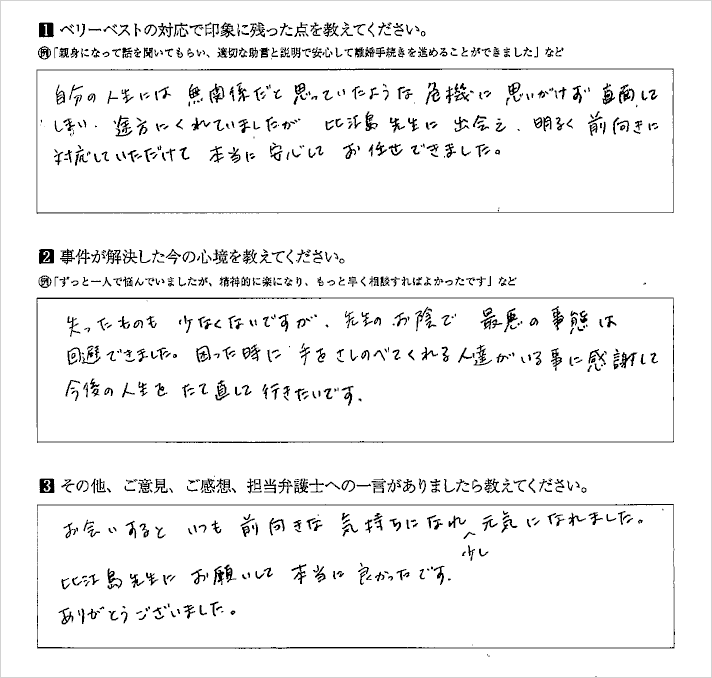 1 ベリーベストの対応で印象に残った点を教えてください。
例「親身になって話を聞いてもらい、適切な助言と説明で安心して離婚手続きを進めることができました」など
自分の人生には 無関係だと思っていたような 危機に 思いがけず 直面して
しまい、途方にくれていましたが 比江島先生に 出会え、明るく 前向きに
対応していただけて 本当に 安心して お任せできました。
2 事件が解決した今の心境を教えてください。
例「ずっと一人で悩んでいましたが、精神的に楽になり、もっと早く相談すればよかったです」など
失ったものも 少なくないですが、先生のお陰で 最悪の事態は
回避できました。困った時に 手をさしのべてくれる人達がいる事に感謝して
今後の人生を たて直して行きたいです。
3 その他、ご意見、ご感想、担当弁護士への一言がありましたら教えてください。
お会いすると いつも 前向きな 気持ちになれ 元気になれました。
少し
比江島先生に お願いして 本当に 良かったです。
ありがとうございました。